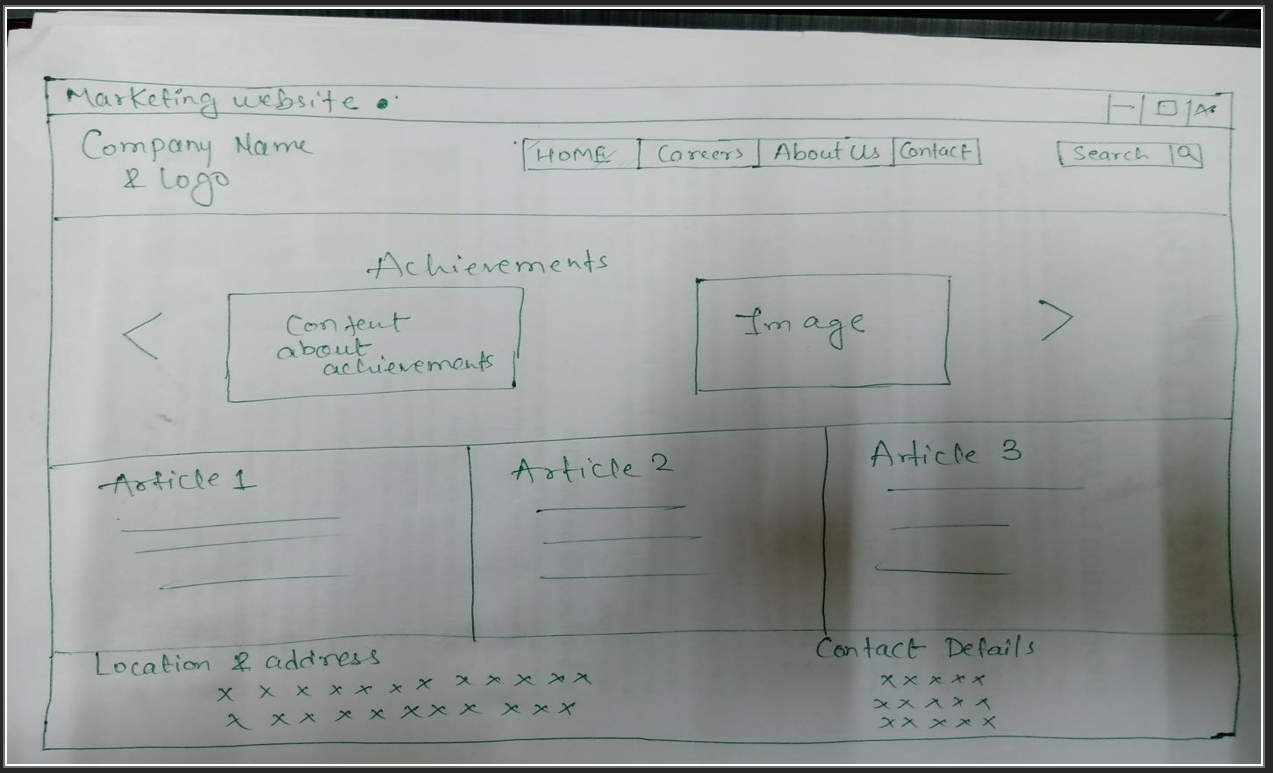 Marketing website
Company Name
& Logo
HOME Careers About Us Contact
Search
Achievements
Content
about
achievements
Image
Article 1
Article 2
Article 3
Location & address
x x x x x x x x x x x x
x x x x x x x x x x x
Contact Details
x x x x x
x x x x x
x x x x x